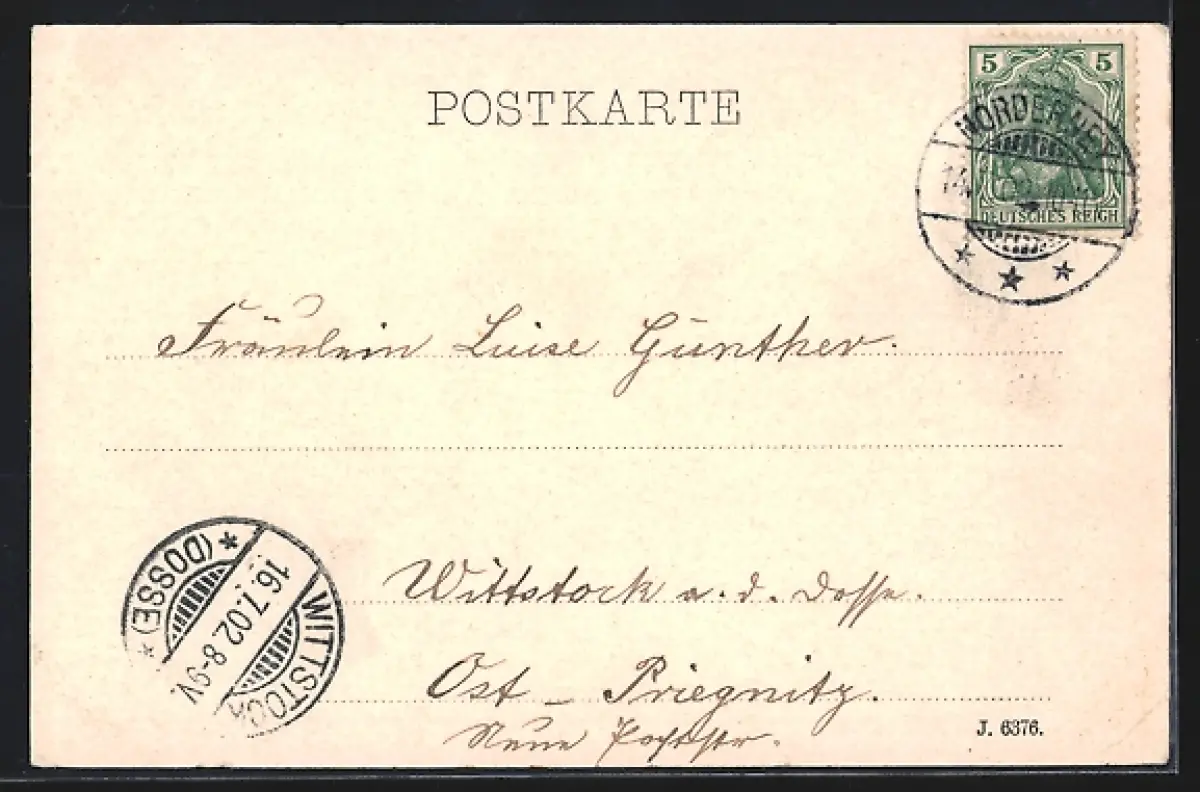 POSTKARTE
5 5
NORDERNEY
DEUTSCHES REICH
Fräulein Luise Günther.
Wittstock a. d. Dosse.
Ost-Priegnitz.
Neue Poststr.
WITTSTOCK
16.7.02.8-9V.
* (DOSSE) *
J. 6376.